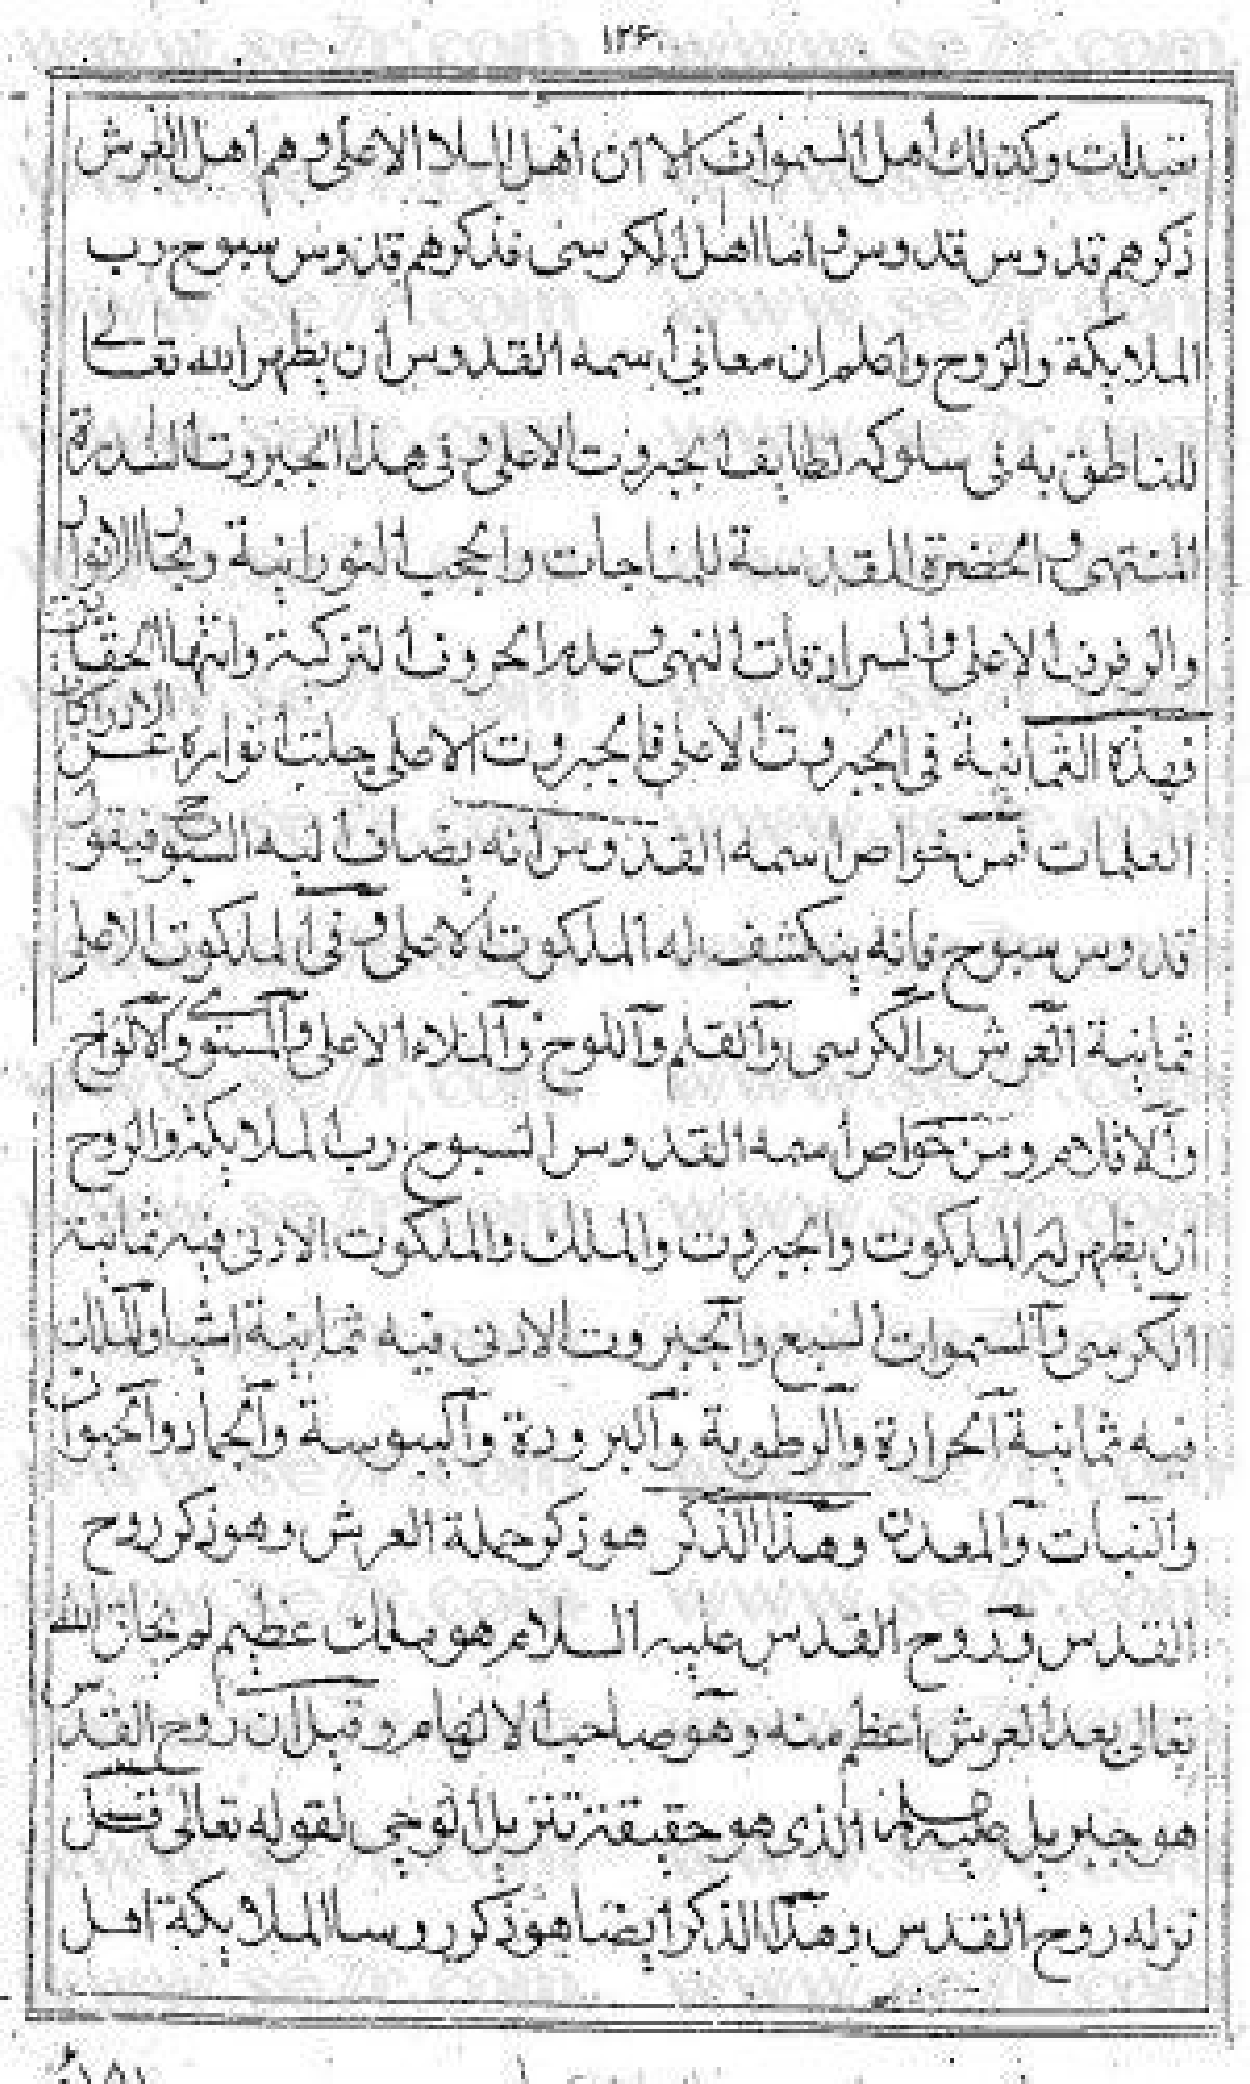 ١٢٦
وكذلك أهل السموات الا ان اهل الملا الاعلى وهم اهل العرش
ذكرهم قدوس قدوس واما اهل الكرسى فذكرهم قدوس سبوح رب
الملايكة والروح واعلم ان معاني أسمه القدوس أن يظهر الله تعالى
للناطق به فى سلوكه لطايف الجبروت الاعلى وفى هذا الجبروت السدرة
المنتهى والحضرة المقدسة للمناجات والحجب النورانية الانوار
والرفرف الاعلى والسرادقات
فهذه الثمانية فى الجبروت الاعلى فالجبروت الاعلى جلت أنواره عن
فمن خواص اسمه القدوس أنه يضاف اليه السبوح فيقول
قدوس سبوح فانه ينكشف له الملكوت الاعلى وفى الملكوت الاعلى
ثمانية العرش والكرسى والقلم واللوح والملاء الاعلى والمستوى والالواح
والاقلام ومن خواص اسمه القدوس السبوح رب الملايكة والروح
ان يظهر له الملكوت والجبروت والملك والملكوت الادنى فيه ثمانية
الكرسى والسموات السبع والجبروت الادنى فيه ثمانية اشيا والملك
فيه ثمانية الحرارة والرطوبة والبرودة واليبوسة والجماد والحيوان
والنبات والمعدن وهذا الذكر هو ذكر حملة العرش وهو ذكر روح
القدس وروح القدس عليه السلام هو ملك عظيم لم يخلق الله
تعالى بعد العرش أعظم منه وهو صاحب الالهام وقيل ان روح القدس
هو جبريل عليه الذى هو حقيقة تنزيل الوحى لقوله تعالى قل
نزله روح القدس وهذا الذكر ايضا هو ذكر روسا الملايكة اهل